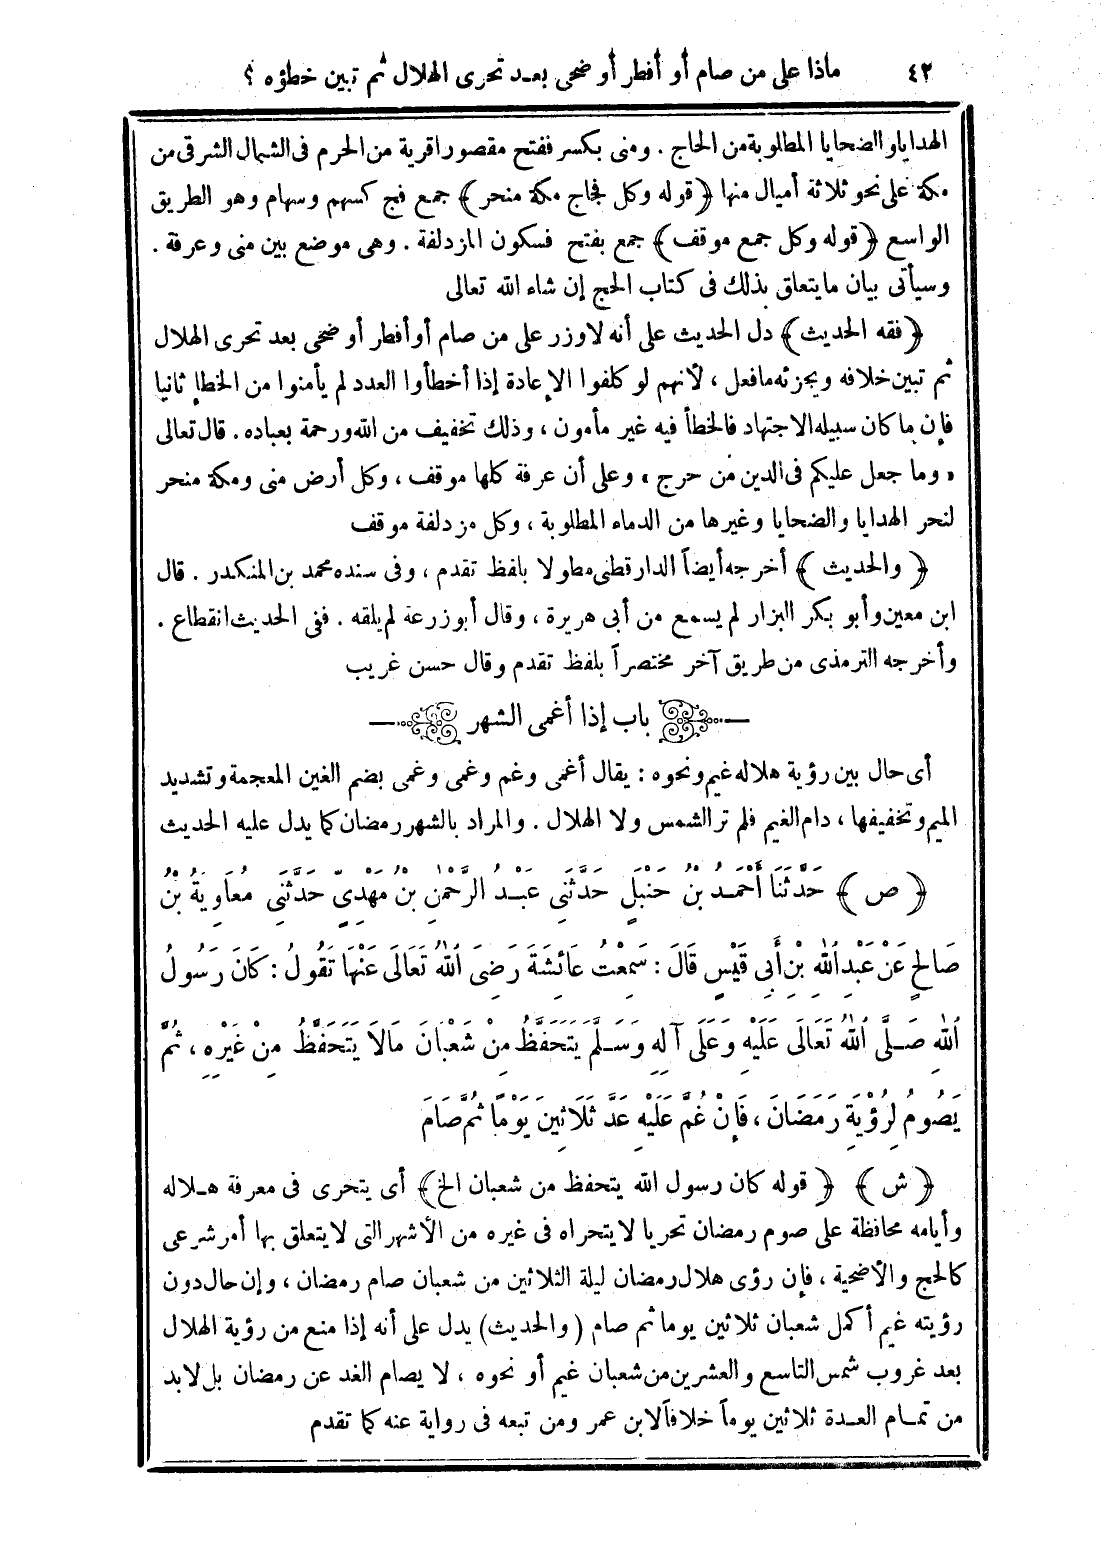 ٤٢ ماذا على من صام أو أفطر أو ضحى بعد تحرى الهلال ثم تبين خطؤه ؟
الهدايا والضحايا المطلوبة من الحاج . ومنى بكسر ففتح مقصورا قرية من الحرم فى الشمال الشرقى من
مكة على نحو ثلاثة أميال منها ﴿قوله وكل فجاج مكة منحر﴾ جمع فج كسهم وسهام وهو الطريق
الواسع ﴿قوله وكل جمع موقف﴾ جمع بفتح فسكون المزدلفة . وهى موضع بين منى وعرفة .
وسيأتى بيان ما يتعلق بذلك فى كتاب الحج إن شاء الله تعالى
﴿فقه الحديث﴾ دل الحديث على أنه لا وزر على من صام أو أفطر أو ضحى بعد تحرى الهلال
ثم تبين خلافه ويجزئه ما فعل ، لأنهم لو كلفوا الإعادة إذا أخطأوا العدد لم يأمنوا من الخطإ ثانيا
فإن ما كان سبيله الاجتهاد فالخطأ فيه غير مأمون ، وذلك تخفيف من الله ورحمة بعباده . قال تعالى
« وما جعل عليكم فى الدين من حرج » وعلى أن عرفة كلها موقف ، وكل أرض منى ومكة منحر
لنحر الهدايا والضحايا وغيرها من الدماء المطلوبة ، وكل مزدلفة موقف
﴿ والحديث ﴾ أخرجه أيضاً الدارقطنى مطولا بلفظ تقدم ، وفى سنده محمد بن المنكدر . قال
ابن معين وأبو بكر البزار لم يسمع من أبى هريرة ، وقال أبو زرعة لم يلقه . ففى الحديث انقطاع .
وأخرجه الترمذى من طريق آخر مختصراً بلفظ تقدم وقال حسن غريب
باب إذا أغمى الشهر
أى حال بين رؤية هلاله غيم ونحوه : يقال أغمى وغم وغمى وغمى بضم الغين المعجمة وتشديد
الميم وتخفيفها ، دام الغيم فلم تر الشمس ولا الهلال . والمراد بالشهر رمضان كما يدل عليه الحديث
﴿ ص ﴾ حَدَّثَنَا أَحْمَدُ بْنُ حَنْبَلٍ حَدَّثَنِى عَبْدُ الرَّحْمٰنِ بْنُ مَهْدِىٍّ حَدَّثَنِى مُعَاوِيَةُ بْنُ
صَالِحٍ عَنْ عَبْدِ اللهِ بْنِ أَبِى قَيْسٍ قَالَ : سَمِعْتُ عَائِشَةَ رَضِىَ اللهُ تَعَالَى عَنْهَا تَقُولُ : كَانَ رَسُولُ
اللهِ صَلَّى اللهُ تَعَالَى عَلَيْهِ وَعَلَى آلِهِ وَسَلَّمَ يَتَحَفَّظُ مِنْ شَعْبَانَ مَالَا يَتَحَفَّظُ مِنْ غَيْرِهِ ، ثُمَّ
يَصُومُ لِرُؤْيَةِ رَمَضَانَ ، فَإِنْ غُمَّ عَلَيْهِ عَدَّ ثَلَاثِينَ يَوْمًا ثُمَّ صَامَ
﴿ ش ﴾ ﴿ قوله كان رسول الله يتحفظ من شعبان الخ﴾ أى يتحرى فى معرفة هلاله
وأيامه محافظة على صوم رمضان تحريا لا يتحراه فى غيره من الأشهر التى لا يتعلق بها أمر شرعى
كالحج والأضحية ، فإن رؤى هلال رمضان ليلة الثلاثين من شعبان صام رمضان ، وإن حال دون
رؤيته غيم أكمل شعبان ثلاثين يوما ثم صام (والحديث) يدل على أنه إذا منع من رؤية الهلال
بعد غروب شمس التاسع والعشرين من شعبان غيم أو نحوه ، لا يصام الغد عن رمضان بل لابد
من تمام العدة ثلاثين يوماً خلافاً لابن عمر ومن تبعه فى رواية عنه كما تقدم